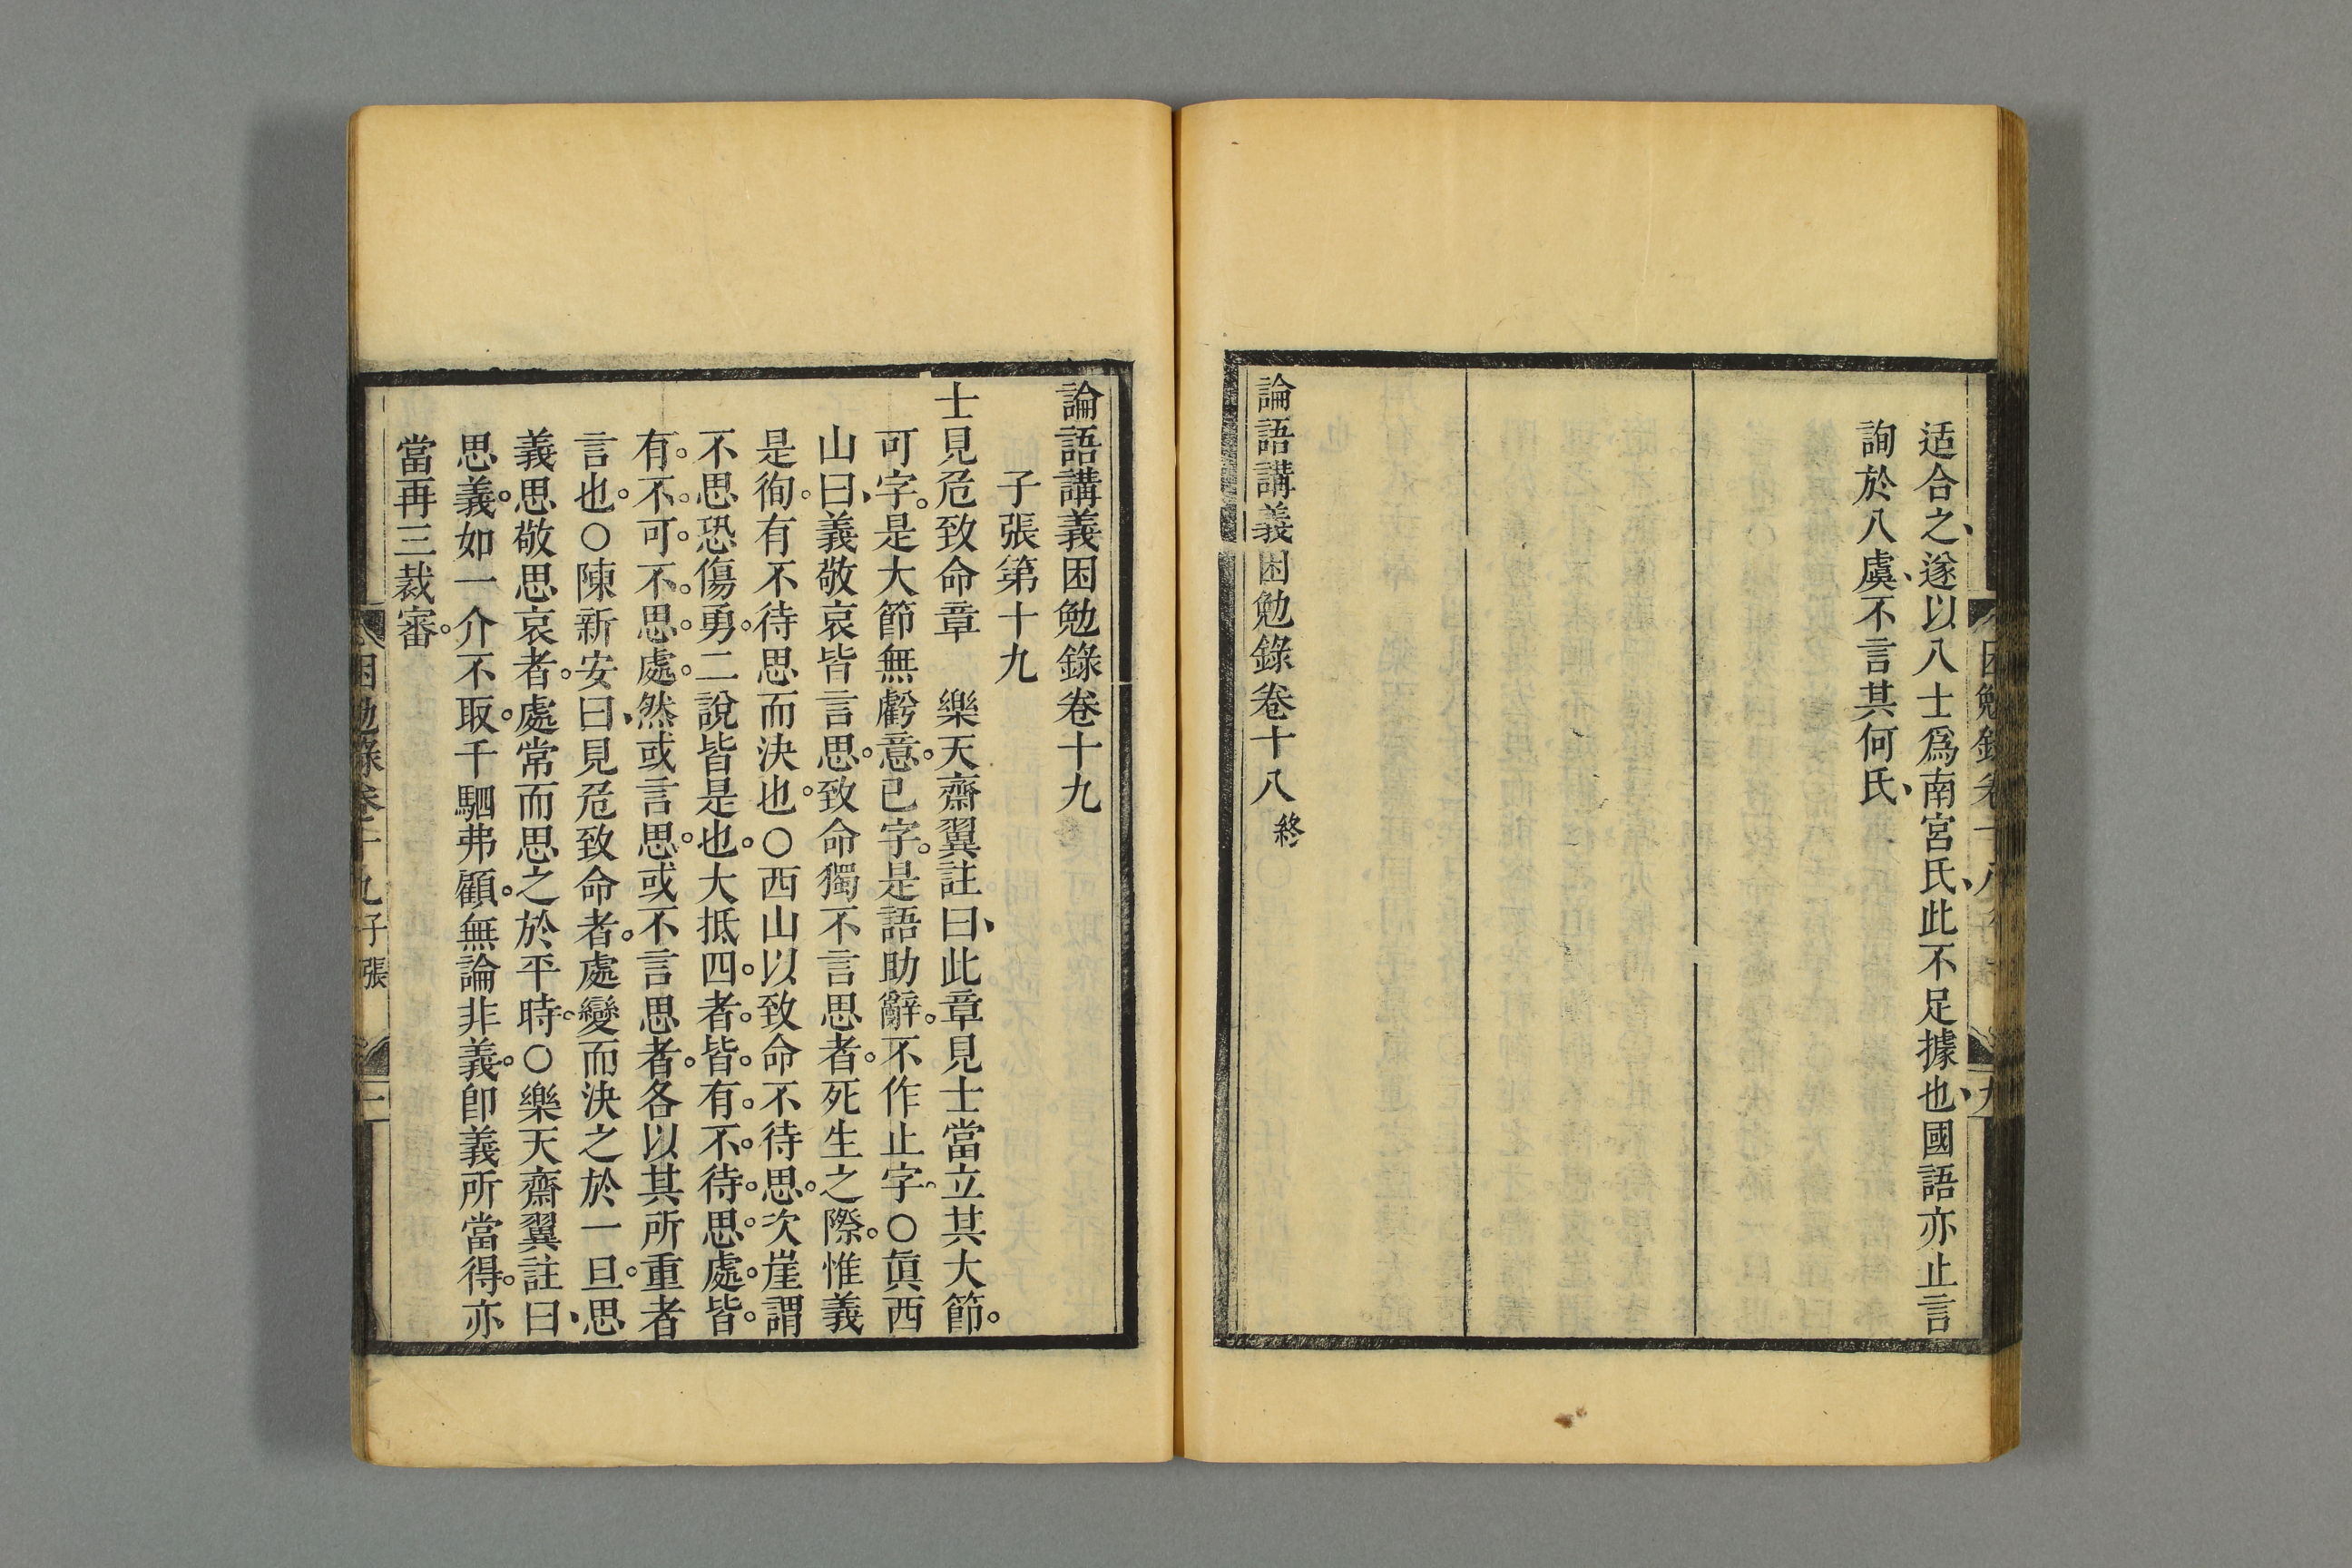 适合之、遂以八士爲南宮氏、此不足據也、國語亦止言
詢於八虞、不言其何氏、
論語講義困勉錄卷十八終
論語講義困勉錄卷十九
子張第十九
士見危致命章　樂天齋翼註曰、此章見士當立其大節。
可字。是大節無虧意。已字。是語助辭。不作止字。○眞西
山曰、義敬哀皆言思。致命獨不言思者。死生之際。惟義
是徇。有不待思而決也。○西山以致命不待思。次崖謂
不思恐傷勇。二說皆是也。大抵四者。皆有。不待。思。處。皆。
有。不。可。不。思。處。然或言思。或不言思者。各以其所重者
言也。○陳新安曰、見危致命者。處變而決之於一旦。思
義思敬思哀者。處常而思之於平時。○樂天齋翼註曰、
思義。如一介不取。千駟弗顧。無論非義。卽義所當得。亦
當再三裁審。
困勉錄卷十九 子張 一